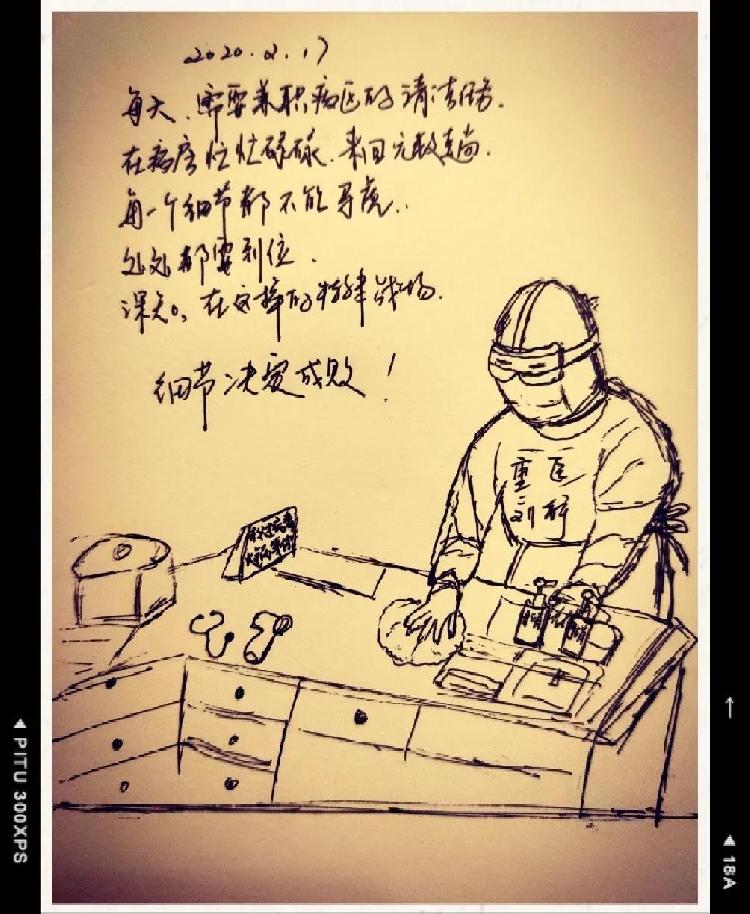 2020.2.17
每天、需要兼职病区的清洁任务.
在病房忙忙碌碌、来回无数趟.
每一个细节都不能马虎..
处处都要到位.
深知。在这样的特殊战场.
细节决定成败！
重医
二
刘婷
◀ PITU 300XPS
◀ 18A